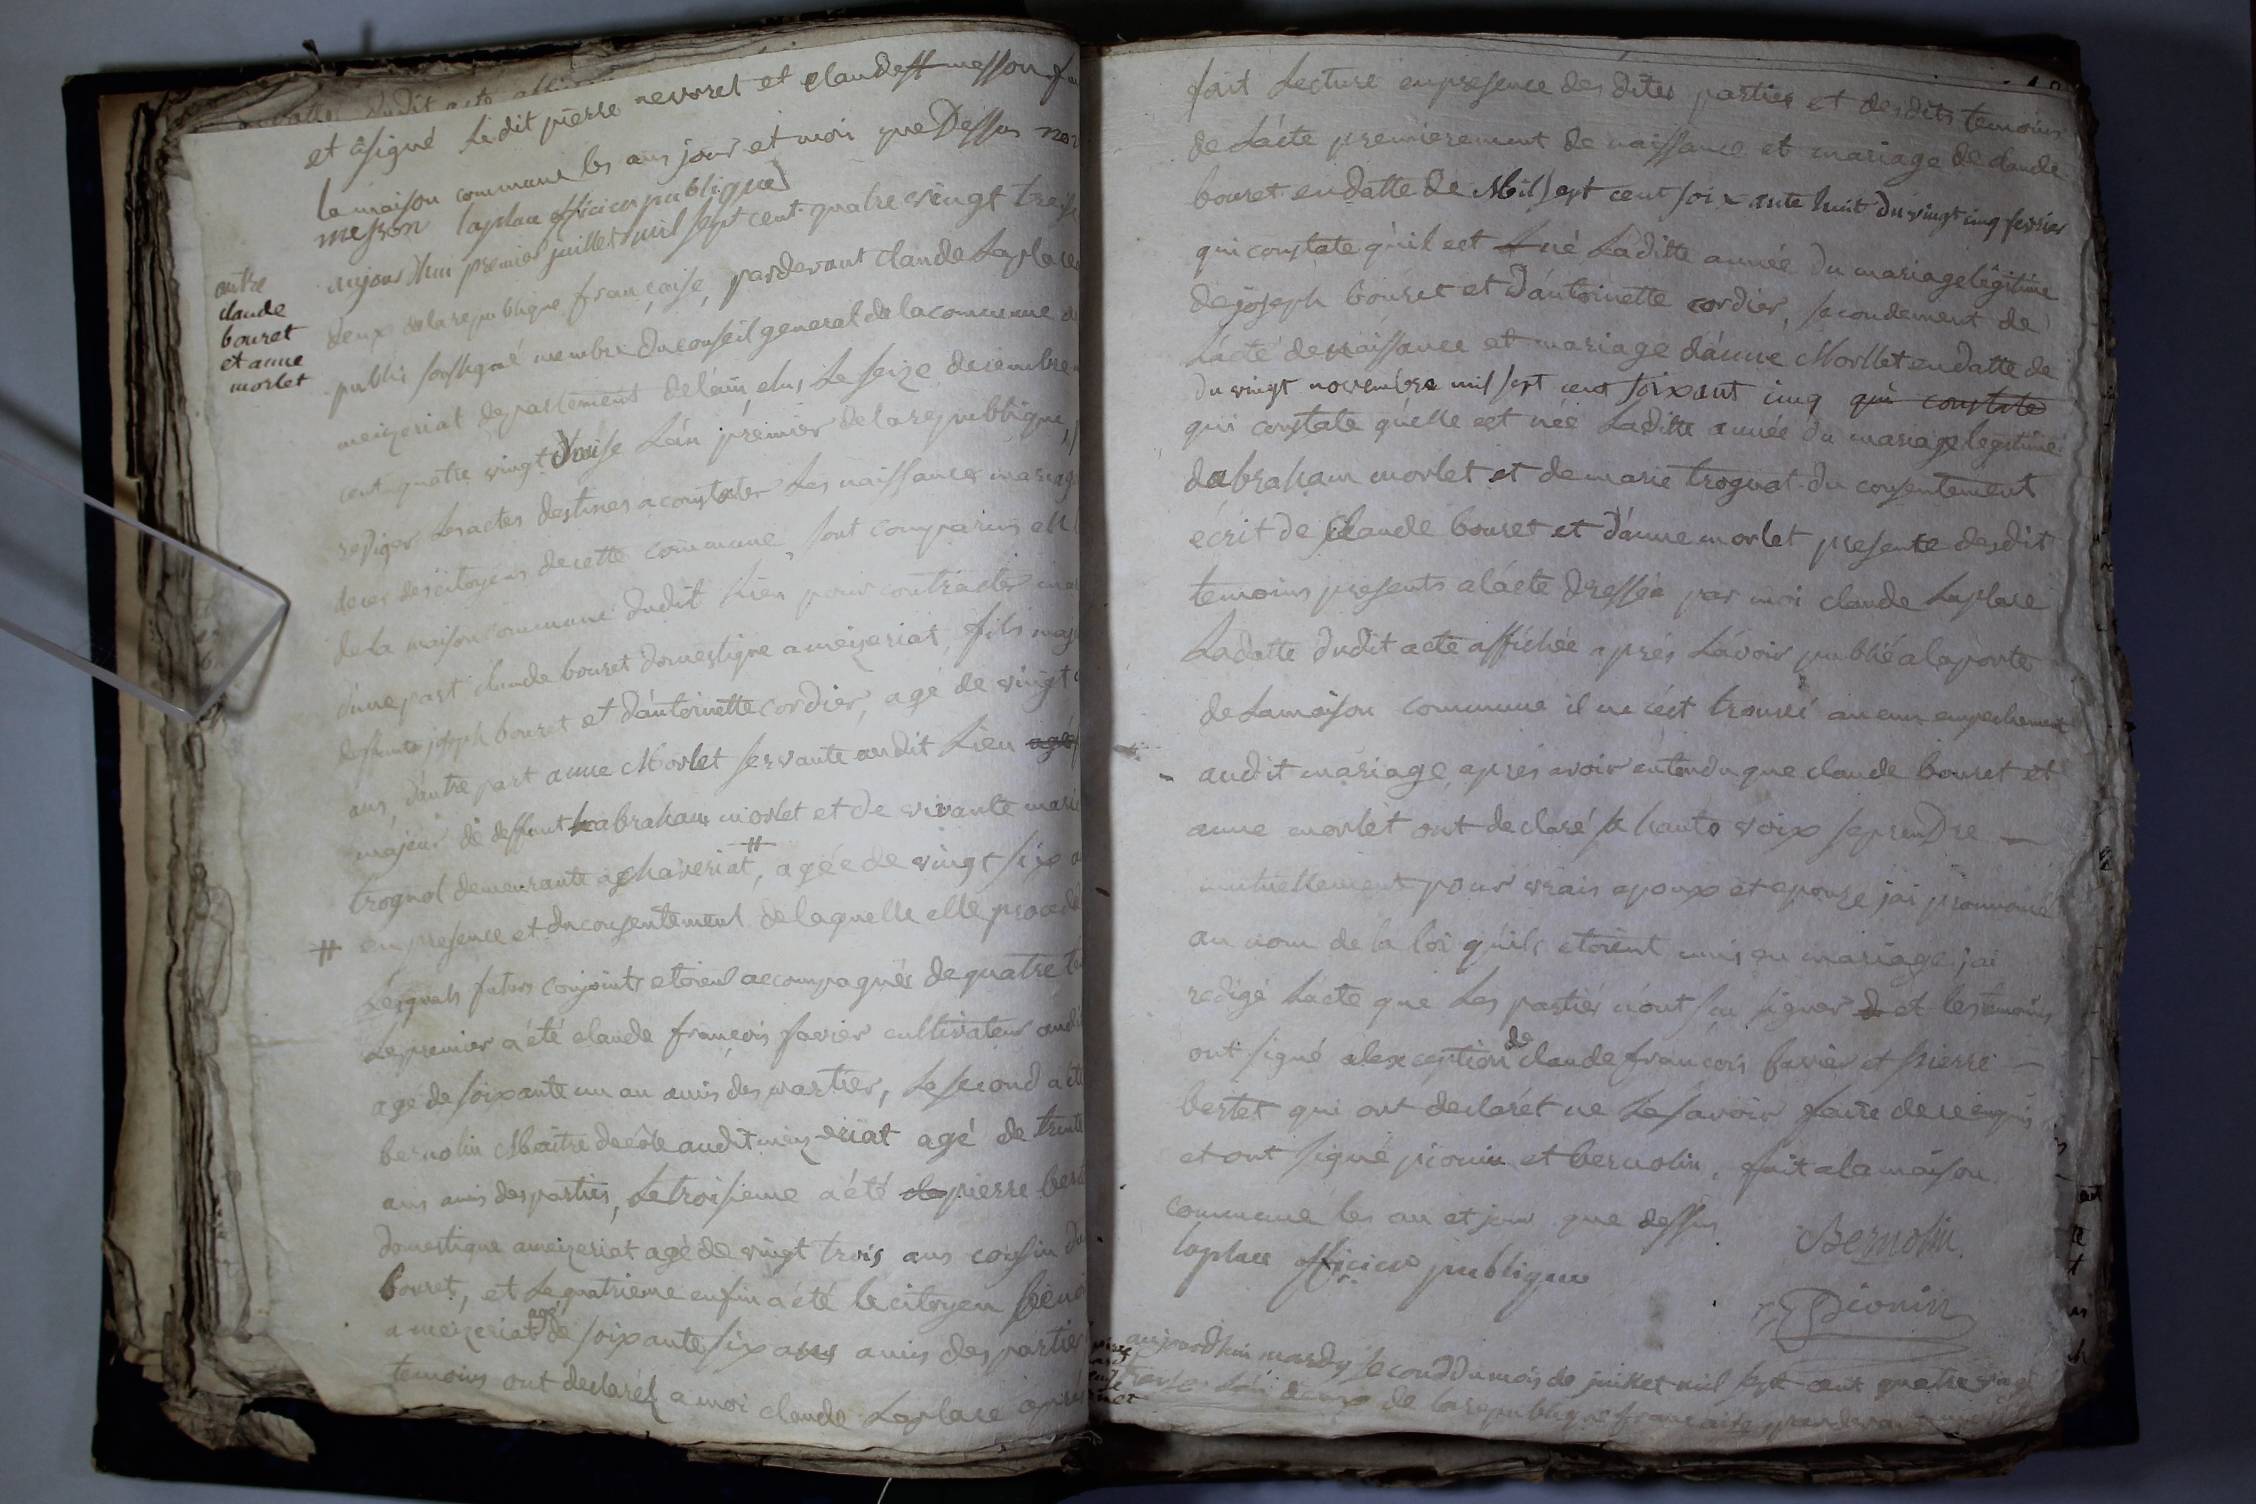 et ásigné Ledit pierre nevoret et claude messon
la maison commune les ans jour et mois que Dessus
messon laplace officier publique
autre
claude
bouret
et anne
morlet
aujourdhui premier juillet mil sept cent quatre vingt treise
deux de la republique française, pardevant claude Laplace
public soussigné membre du conseil general de la commune
meizeriat departement de léin, elus Le seize decembre
cent quatre vingt douise Lán premier de la republique,
rediger Les actes destinés a constater Les naissances mariages
deces des citoyens de cette commune, sont comparus
de La maison commune dudit Lieu pour contracter
dúne part claude bouret domestique a meizeriat, fils majeur
deffunts joseph bouret et dántoinette cordier, agé de vingt
ans, dáutre part anne Morlet servante audit Lieu agé
majeur de deffunt abraham morlet et de vivante marie
trognot demeurante a chaveriat #, agée de vingt six
# en presence et du consentement de laquelle elle procede
Lesquels futurs conjoints etoient accompagnés de quatre
Le premier a été claude françois favier cultivateur audit
agé de soixante un an amis des parties, Le second a été
bernolin Maitre decôle audit meizeriat agé de trente
ans amis des parties, Le troisieme a été pierre bertet
domestique a meizeriat agé de vingt trois ans cousin du
bouret, et Le quatrieme enfin a été le citoyen
a meizeriat agé de soixante six ans amis des parties
temoins ont declarés a moi claude Laplace apres
fait Lecture en presence des dites parties et desdits temoins
de Lácte premierement de naissance et mariage de claude
bouret en datte de Mil sept cent soixante huit du vingt cinq fevrier
qui constate qúil est né Laditte année du mariage légitime
de joseph bouret et dántoinette cordier, secondement de
Lácte de naissance et mariage dánne Morllet en datte de
du vingt novembre mil sept cent soixant cinq qui constate
qui constate quélle est née Laditte année du mariage legitime
dabraham morlet et de marie trognot du consentement
écrit de Claude bouret et dánne morlet presente desdit
temoins presents a lácte dressée par moi claude Laplace
La datte dudit acte affichée aprés Lávoir publié a la porte
de La maison commune il ne cést trouvé aucun empechement
audit mariage, apres avoir entendu que claude bouret et
anne morlet ont declaré a haute voix se prendre —
mutuellement pour vrais epoux et epouse jai prononcé
au nom de la loi qúils etoient unis en mariage jai
redigé Lácte que Les partiés nónt su signer et les temoins
ont signé a lexception de claude françois favier et pierre —
bertet qui ont declarét ne Le savoir faire de ce enquis
et ont signé pionin et bernolin, fait a la maison
commune les an et jour que dessus
Bernolin
laplace officier publique
Pionin
aujourdhui mardy second du mois de juillet mil sept cent quatre vingt
treise Lán deux de la republique française, pardevant